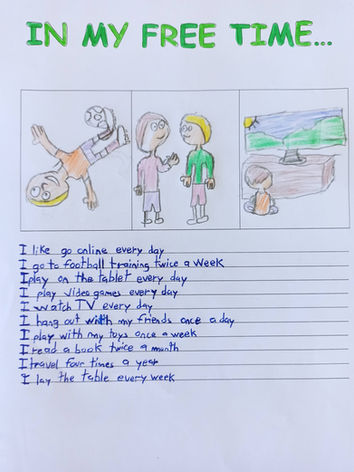 IN MY FREE TIME...
I like go online every day
I go to football training twice a week
I play on the tablet every day
I play video games every day
I watch TV every day
I hang out with my friends once a day
I play with my toys once a week
I read a book twice a month
I travel four times a year
I lay the table every week